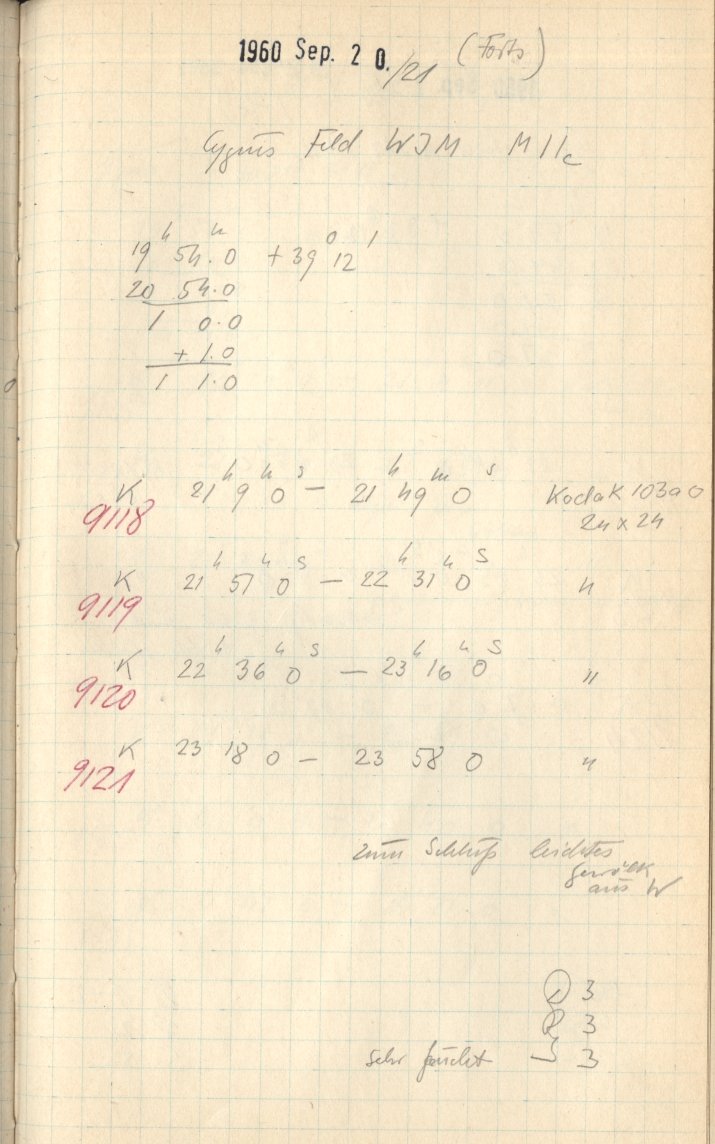 1960 Sep. 20./21 (Forts)
Cygnus Feld WJM M11c
19ʰ 54.0ᵐ +39° 12'
20 54.0
1 0.0
+ 1.0
1 1.0
K 21ʰ 9ᵐ 0ˢ — 21ʰ 49ᵐ 0ˢ Kodak 103a0
9118 24 x 24
K 21ʰ 51ᵐ 0ˢ — 22ʰ 31ᵐ 0ˢ "
9119
K 22ʰ 36ᵐ 0ˢ — 23ʰ 16ᵐ 0ˢ "
9120
K 23 18 0 — 23 58 0 "
9121
zum Schluß leichtes
Gewölk
aus W
3
R 3
sehr feucht 3